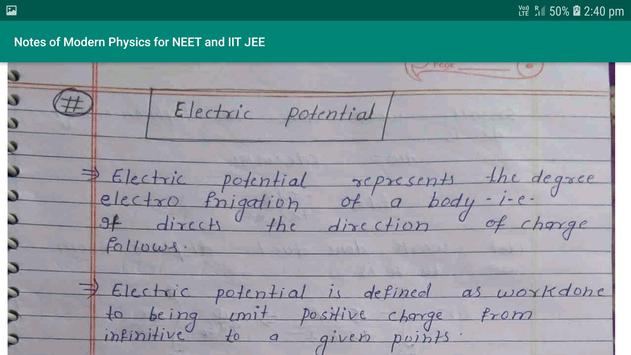 VoD LTE R 50% 2:40 pm
Notes of Modern Physics for NEET and IIT JEE
Page
#
Electric potential
⇒ Electric potential represents the degree
electro fnigation of a body - i-e-
If directs the direction of charge
follows.
⇒ Electric potential is defined as workdone
to being unit positive charge from
infinitive to a given points.